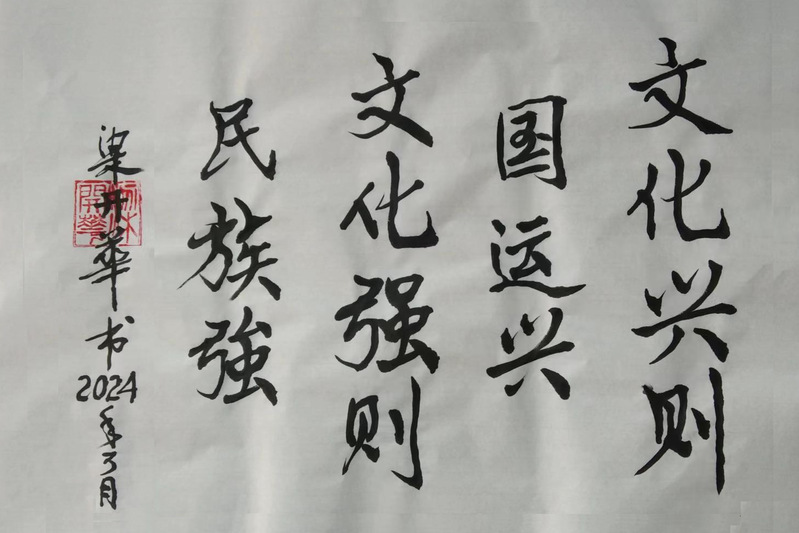 文化兴则
国运兴
文化强则
民族強
梁开華书
2024年 月